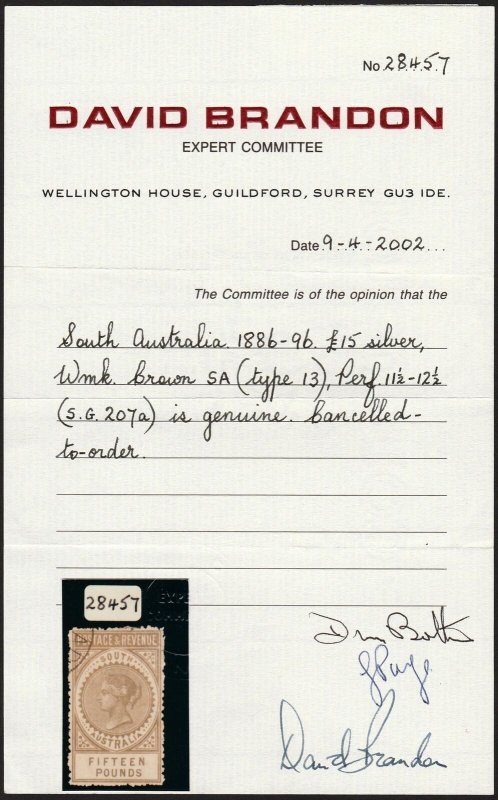 No 28457
DAVID BRANDON
EXPERT COMMITTEE
WELLINGTON HOUSE, GUILDFORD, SURREY GU3 IDE.
Date 9-4-2002...
The Committee is of the opinion that the
South Australia. 1886-96. £15 silver,
Wmk. Crown SA (type 13), Perf. 11½-12½
(S.G. 207a) is genuine. Cancelled-
to-order.
28457
POSTAGE & REVENUE
SOUTH
AUSTRALIA
FIFTEEN
POUNDS
David Brandon